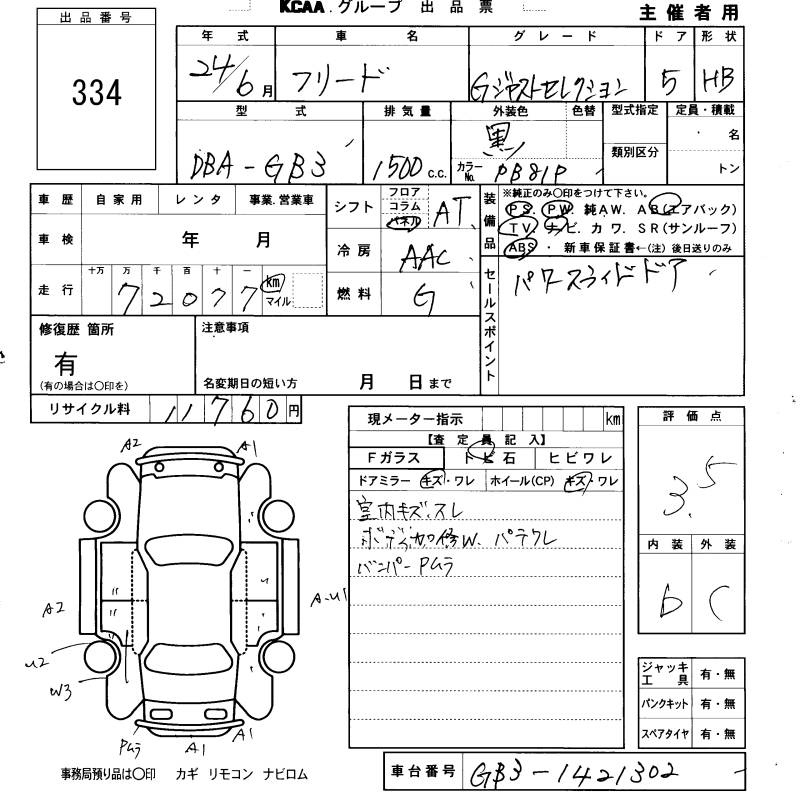 出品番号
334
KCAA.グループ 出品票
主催者用
年式 車名 グレード ドア 形状
24/6月 フリード Gジャストセレクション 5 HB
型式 排気量 外装色 色替 型式指定 定員・積載
DBA-GB3 1500c.c. 黒 カラーNo. PB81P 類別区分 名
トン
車歴 自家用 レンタ 事業.営業車
車検 年 月
走行 十万 万 千 百 十 一
72077 km マイル
シフト フロア コラム パネル AT
冷房 AAC
燃料 G
装備品 ※純正のみ〇印をつけて下さい。
PS. PW. 純AW. AB(エアバック)
TV. ナビ. カワ. SR(サンルーフ)
ABS ・ 新車保証書←(注) 後日送りのみ
セールスポイント パワースライドドア
修復歴 箇所
有
(有の場合は〇印を)
注意事項
名変期日の短い方 月 日まで
リサイクル料 11760円
現メーター指示 km
【査定員記入】
Fガラス トビ石 ヒビワレ
ドアミラー キズ・ワレ ホイール(CP) キズ・ワレ
室内キズ.スレ
ボディ加修W. パテワレ
バンパーPムラ
評価点
3.5
内装 外装
b C
A2 A1
A2 A-U1
U2
W3
Pムラ A1 A1
ジャッキ工具 有・無
パンクキット 有・無
スペアタイヤ 有・無
事務局預り品は〇印 カギ リモコン ナビロム
車台番号 GB3-1421302